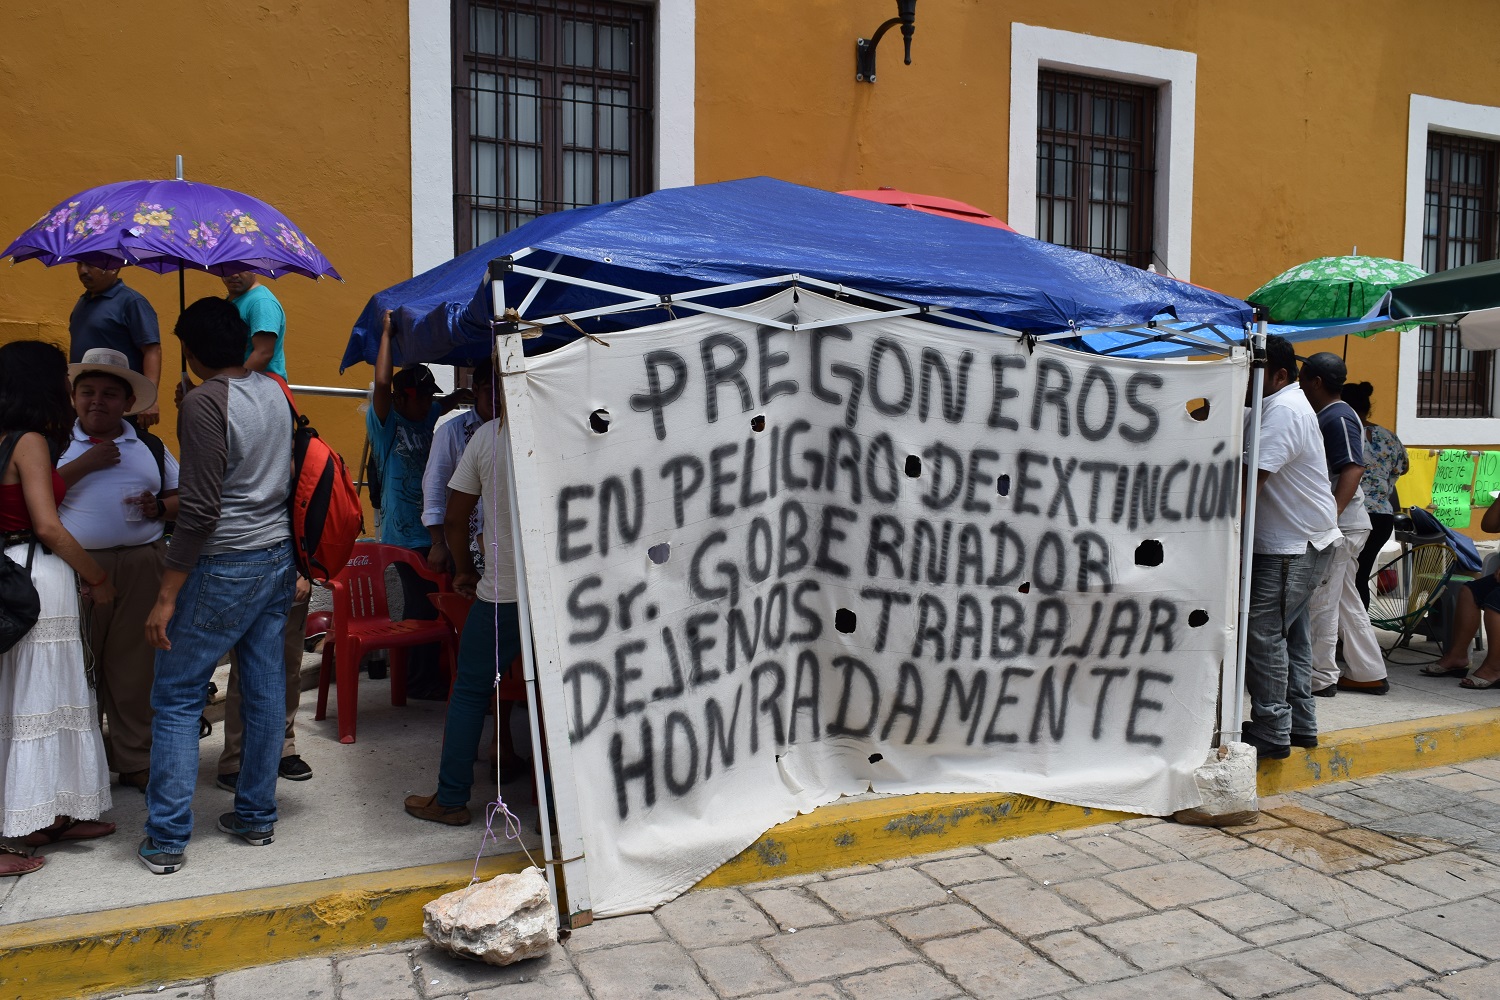 PREGONEROS
EN PELIGRO DE EXTINCIÓN
Sr. GOBERNADOR
DEJENOS TRABAJAR
HONRADAMENTE
Coca-Cola
NO